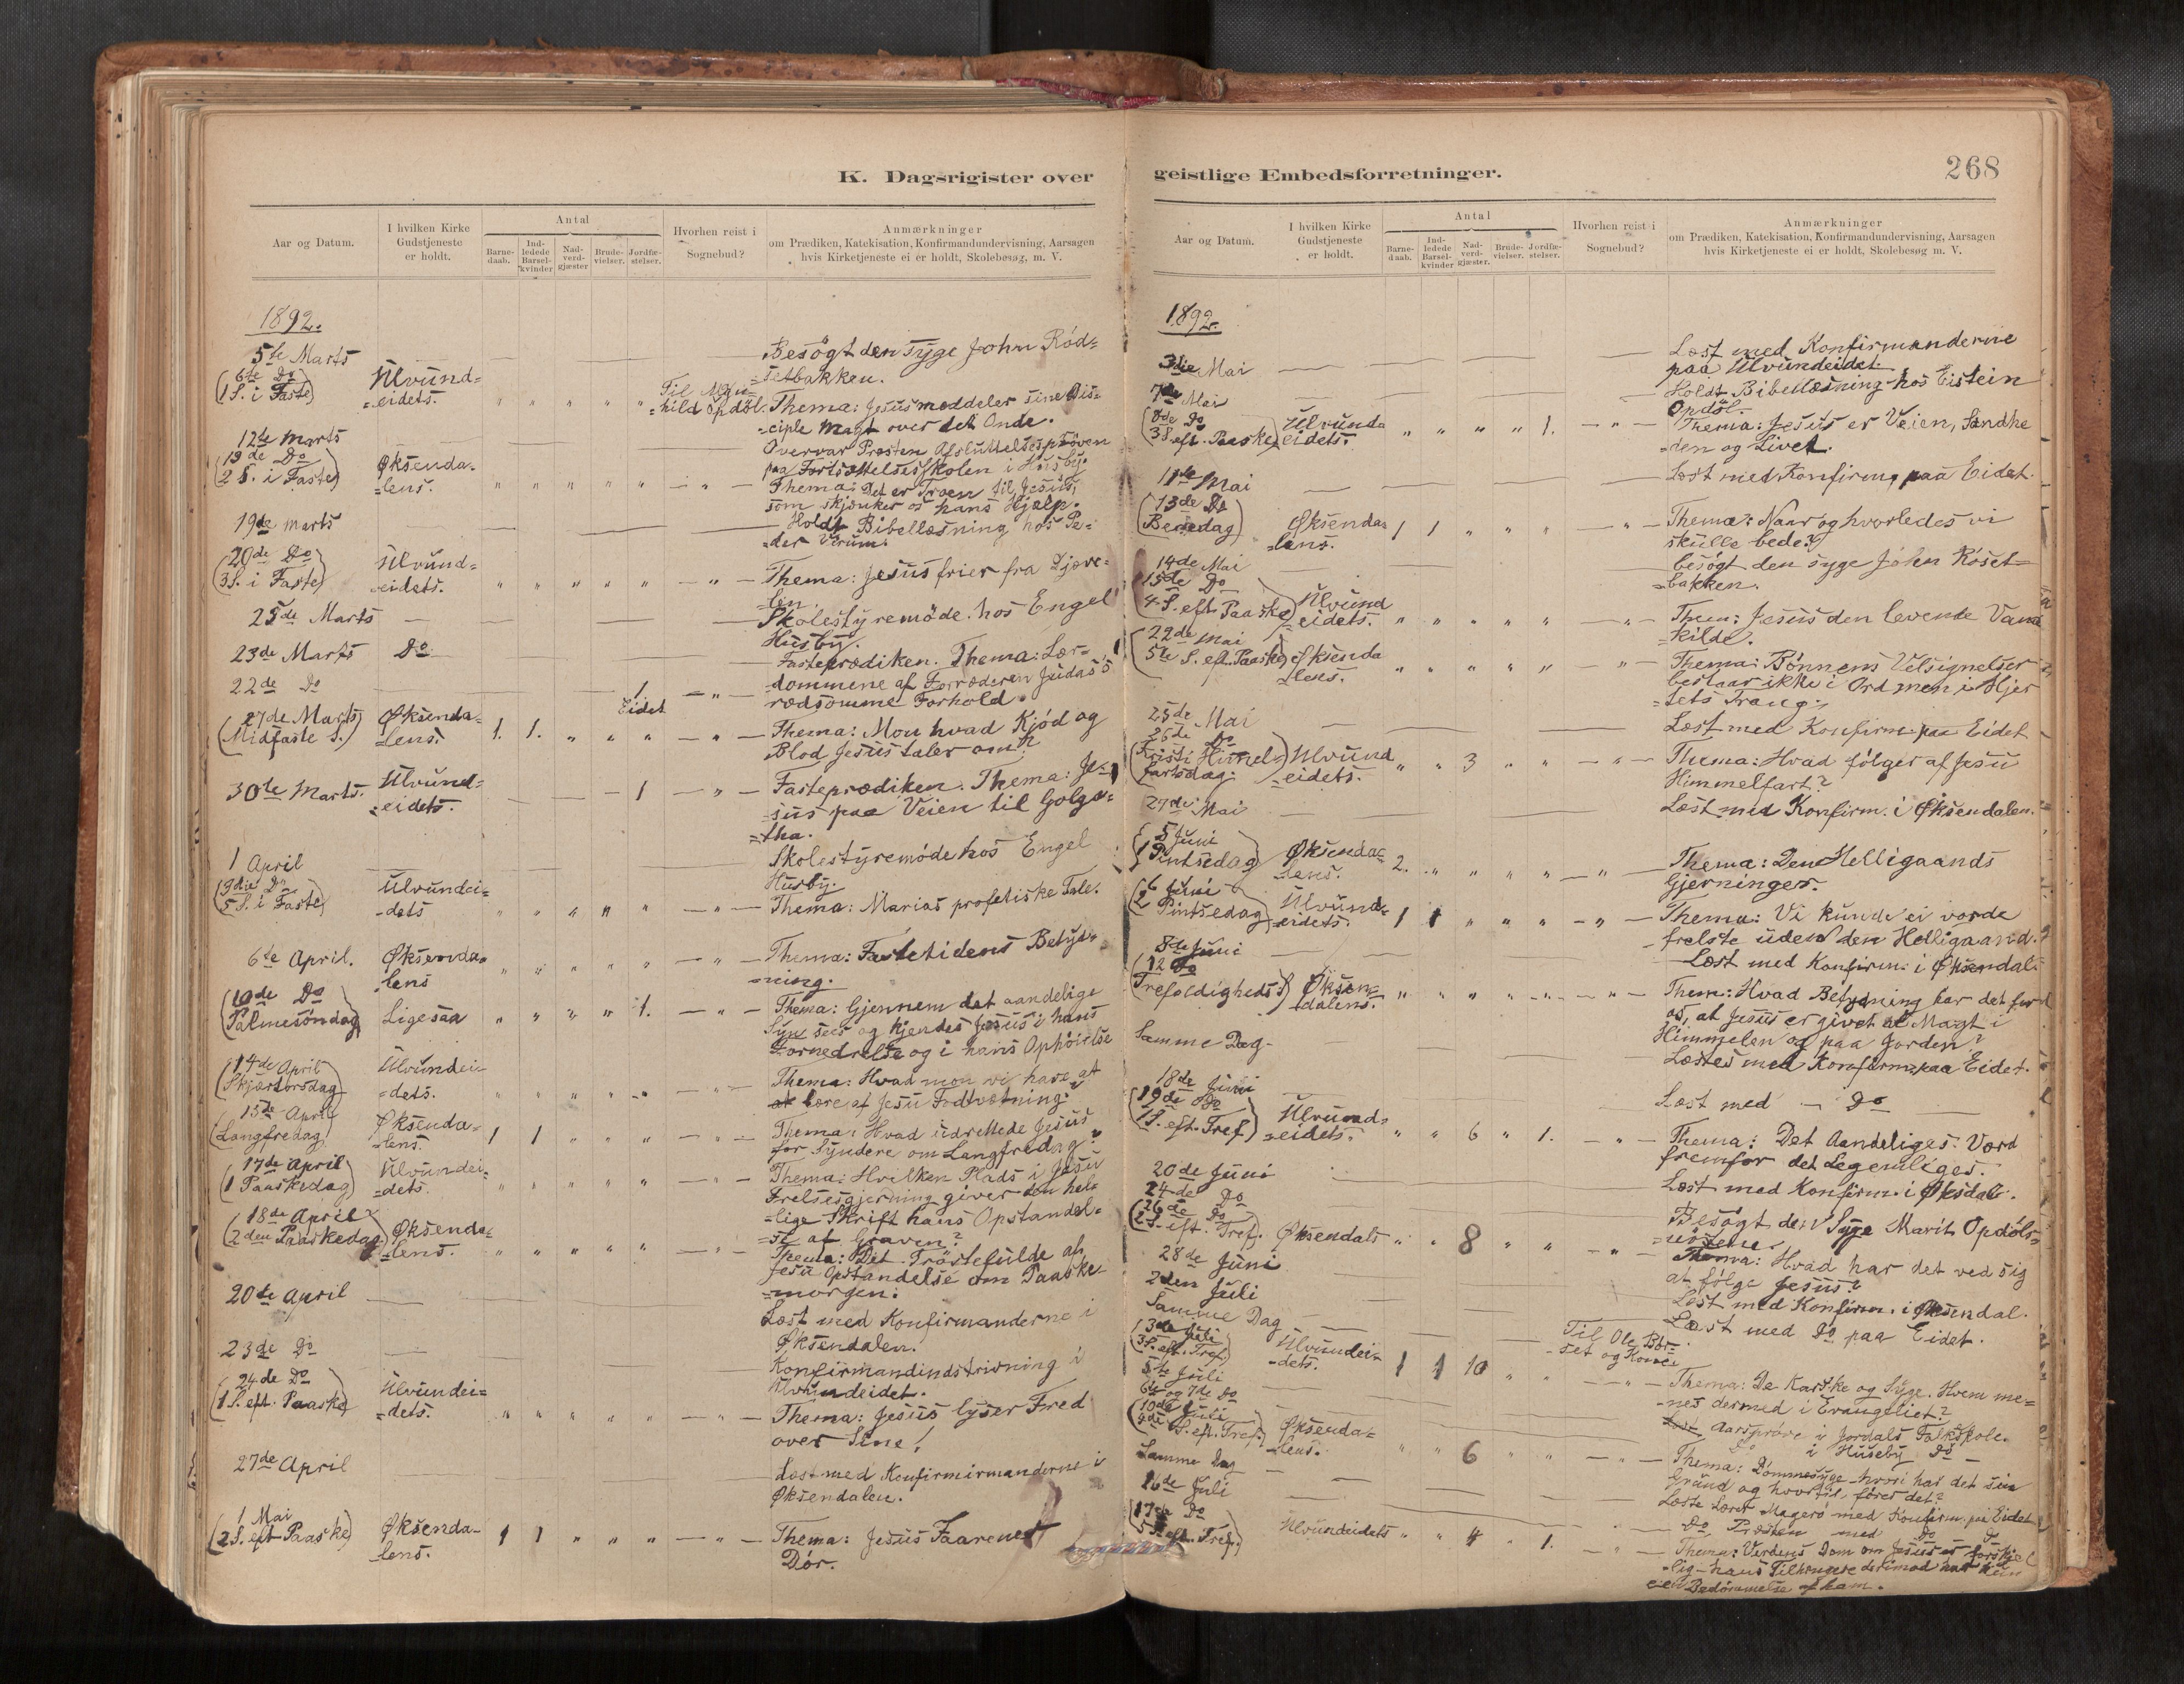 K. Dagsrigister over
Aar og Datum.
I hvilken Kirke
Gudstjeneste
er holdt.
Antal
Barne-
daab.
Ind-
ledede
Barsel-
kvinder
Nad-
verd-
gjæster
Brude-
vielser.
Jordfæ-
stelser.
Hvorhen reist i
Sognebud?
Anmærkninger
om Prædiken, Katekisation, Konfirmandundervisning, Aarsagen
hvis Kirketjeneste ei er holdt, Skolebesøg, m. V.
1892.
5te Marts — Besögt den syge John Röd=
=setbakken.
(6te Do
1 S. i Faste) Ulvund=
=eidets. " " " " " Til
=hild Opdöl. Thema: Jesus meddeler sine Dis=
=ciple Magt over det Onde.
12te Marts — Overvar Prøsten Afsluttelsespröven
paa Fortsættelsesskolen i Husby.
(13de Do
2 S. i Faste) Øksenda=
=lens. " " " " " — " — Thema: Det er Troen til Jesus,
som skjænker os hans Hjælp.
19de Marts — Holdt Bibellæsning hos Pe=
=der Virum.
(20de Do
3 S. i Faste) Ulvund=
=eidets. " " " " " — " — Thema: Jesus frier fra Djæve=
=len.
25de Marts — Skolestyremöde hos Engel
Husby.
23de Marts Do — Fasteprædiken. Thema: Lær=
22de Do — 1 — " — dommene af Forræderen Judas's
Eidet rædsomme Forhold.
(27de Marts
Midfaste S.) Øksenda=
=lens. 1. 1. " " " — " — Thema: Mon hvad Kjød og
Blod Jesus taler om?
30te Marts. Ulvund=
=eidets. — 1 — " — Fasteprædiken. Thema: Je=
=sus paa Veien til Golga=
=tha.
1 April — Skolestyremöde hos Engel
Husby.
(3die Do
5 S. i Faste) Ulvundei=
=dets " " " " " — " — Thema: Marias profetiske Tale.
6te April. Øksenda=
=lens " " " " " — " — Thema: Fastetidens Betyd=
=ning.
(10de Do
Palmesöndag) Ligesaa " " " " 1. — " — Thema: Gjennem det aandelige
Syn sees og kjendes Jesus i hans
Fornedrelse og i hans Ophöielse
(14de April
Skjærtorsdag) Ulvundei=
=dets. " " " " " — " — Thema: Hvad mon vi have at
at lære af Jesu Fodtvætning?
(15de April
Langfredag) Øksenda=
=lens. 1 1 " " " — " — Thema: Hvad udrettede Jesus
for Syndere om Langfredag?
(17de April
1 Paaskedag) Ulvundei=
=dets. " " " " " — " — Thema: Hvilken Plads i Jesu
Frelsesgjerning giver den hel=
=lige Skrift hans Opstandel=
=se af Graven?
(18de April
2den Paaskedag) Øksenda=
=lens. " " " " " — " — Thema: Det Tröstefulde af
Jesu Opstandelse om Paaske=
=morgen.
20de April — Læst med Konfirmanderne i
Øksendalen.
23de Do — Konfirmandindskrivning i
Ulvundeidet.
(24de Do
1 S. eft. Paaske) Ulvundei=
=dets. " " " " " — " — Thema: Jesus lyser Fred
over Sine!
27de April — Læst med Konfirmirmanderne i
Øksendalen.
(1 Mai
2 S. eft Paaske) Øksenda=
=lens. 1 1 " " " — " — Thema: Jesus Faarenes
Dör.
geistlige Embedsforretninger.
268
Aar og Datum.
I hvilken Kirke
Gudstjeneste
er holdt.
Antal
Barne-
daab.
Ind-
ledede
Barsel-
kvinder
Nad-
verd-
gjæster.
Brude-
vielser.
Jordfæ-
stelser.
Hvorhen reist i
Sognebud?
Anmærkninger
om Prædiken, Katekisation, Konfirmandundervisning, Aarsagen
hvis Kirketjeneste ei er holdt, Skolebesøg m. V.
1892.
3die Mai — Læst med Konfirmanderne
paa Ulvundeidet.
7de Mai — Holdt Bibellæsning hos Eistein
Opdöl.
(8de Do
3 S. eft. Paaske) Ulvunda
eidets. " " " " 1. — " — Thema: Jesus er Veien, Sandhe
=den og Livet.
11te Mai — Læst med Konfirm. paa Eidet.
(13de Do
Bededag) Øksenda=
=lens. 1 1 " " " — " — Thema: Naar og hvorledes vi
skulle bede?
14de Mai — besögt den syge John Röset=
=bakken.
(15de Do
4 S. eft. Paaske) Ulvund
=eidets. " " " " " — " — Them: Jesus den levende Vand
=kilde.
(22de Mai
5te S. eft. Paaske) Øksenda
=lens. " " " " " — " — Thema: Bønnens Velsignelser
bestaar ikke i Ord men i Hjer
=tets Trang.
25de Mai — Læst med Konfirm. paa Eidet
(26de Do
Kristi Himmel=
fartsdag.) Ulvund
=eidets. " " 3 " " — " — Thema: Hvad fölger af Jesu
Himmelfart?
27de Mai — Læst med Konfirm. i Øksendalen.
(5 Juni
1 Pintsedag) Øksenda=
=lens. 2. " " " " — " — Thema: Den Helligaands
Gjerninger.
(6 Juni
2 Pintsedag) Ulvund=
=eidets. 1 1 " " " — " — Thema: Vi kunde ei vorde
frelste uden den Helligaand.
8de Juni — Læst med Konfirm. i Øksendal.
(12 Do
Trefoldigheds S) Øksen=
=dalens. " " " " " — " — Them: Hvad Betydning har det for
os, at Jesus er givet al Magt i
Himmelen og paa Jorden?
Samme Dag — Læstes med Konfirm. paa Eidet.
18de Juni — Læst med — Do
(19de Do
1 S. eft. Tref) Ulvund=
=eidets. " " 6 " 1. — " — Thema: Det Aandeliges Værd
fremfor det Legemliges.
20de Juni — Læst med Konfirm. i Øksdal.
24de Do — Besögt den Syge Marit Opdöls=

(26de Do
2 S. eft. Tref. Øksendals " " 8 " " — " — Thema: Hvad har det ved sig
at følge Jesus?
28de Juni — Læst med Konfirm. i Øksendal.
2den Juli — Læst med Do paa Eidet.
Samme Dag — Til Ole Bör=
=set og Kone
(3die Juli
3 S. eft. Tref.) Ulvundei=
=dets. 1 1 10 " " — " — Thema: De Karske og Syge. Hvem me=
=nes dermed i Evangeliet?
5te Juli — Aarsprøve i Jordals Folkskole.
6te og 7de Do — Do i Huseby Do —
(10de Juli
S. eft. Tref.) Øksenda=
=lens. " " 6 " " — " — Thema: Dömmesyge — hvori har det sin
Grund og hvortil förer det?
Samme Dag — Læste Lærer Magerö med Konfirm. paa Eidet
16de Juli — Do Præsten med Do Do
(17de Do
S. eft. Tref.) Ulvundeidets " " 4 " 1. — " — Thema: Verdens Dom om Jesus er forskjel
=lig — hans Tilhængere derimod har kun
een Bedömmelse af ham.